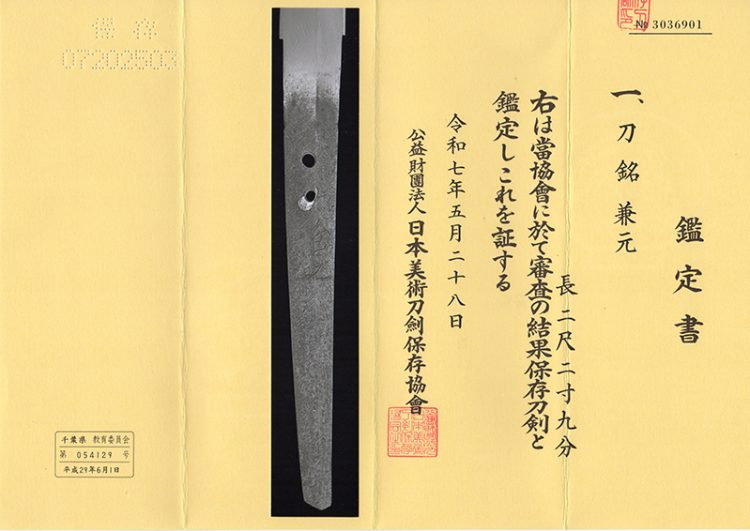 № 3036901
鑑定書
一、刀 銘 兼元
長 二尺二寸九分
右は當協會に於て審査の結果保存刀剣と
鑑定しこれを証する
令和七年五月二十八日
公益財團法人 日本美術刀劍保存協會
保存
07202503
千葉県 教育委員会
第 054129 号
平成29年6月1日